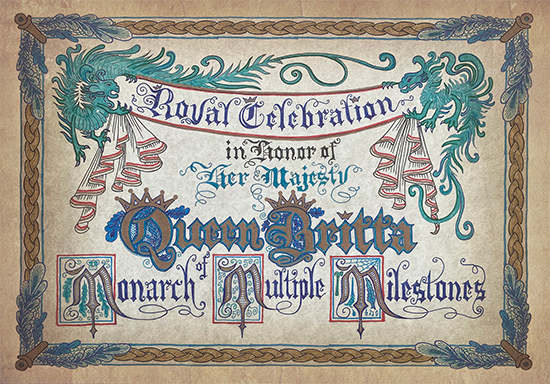 Royal Celebration
in Honor of
Her Majesty
Queen Britta
Monarch of Multiple Milestones